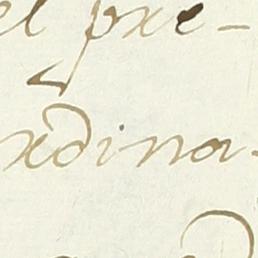 el pre-
rdina-